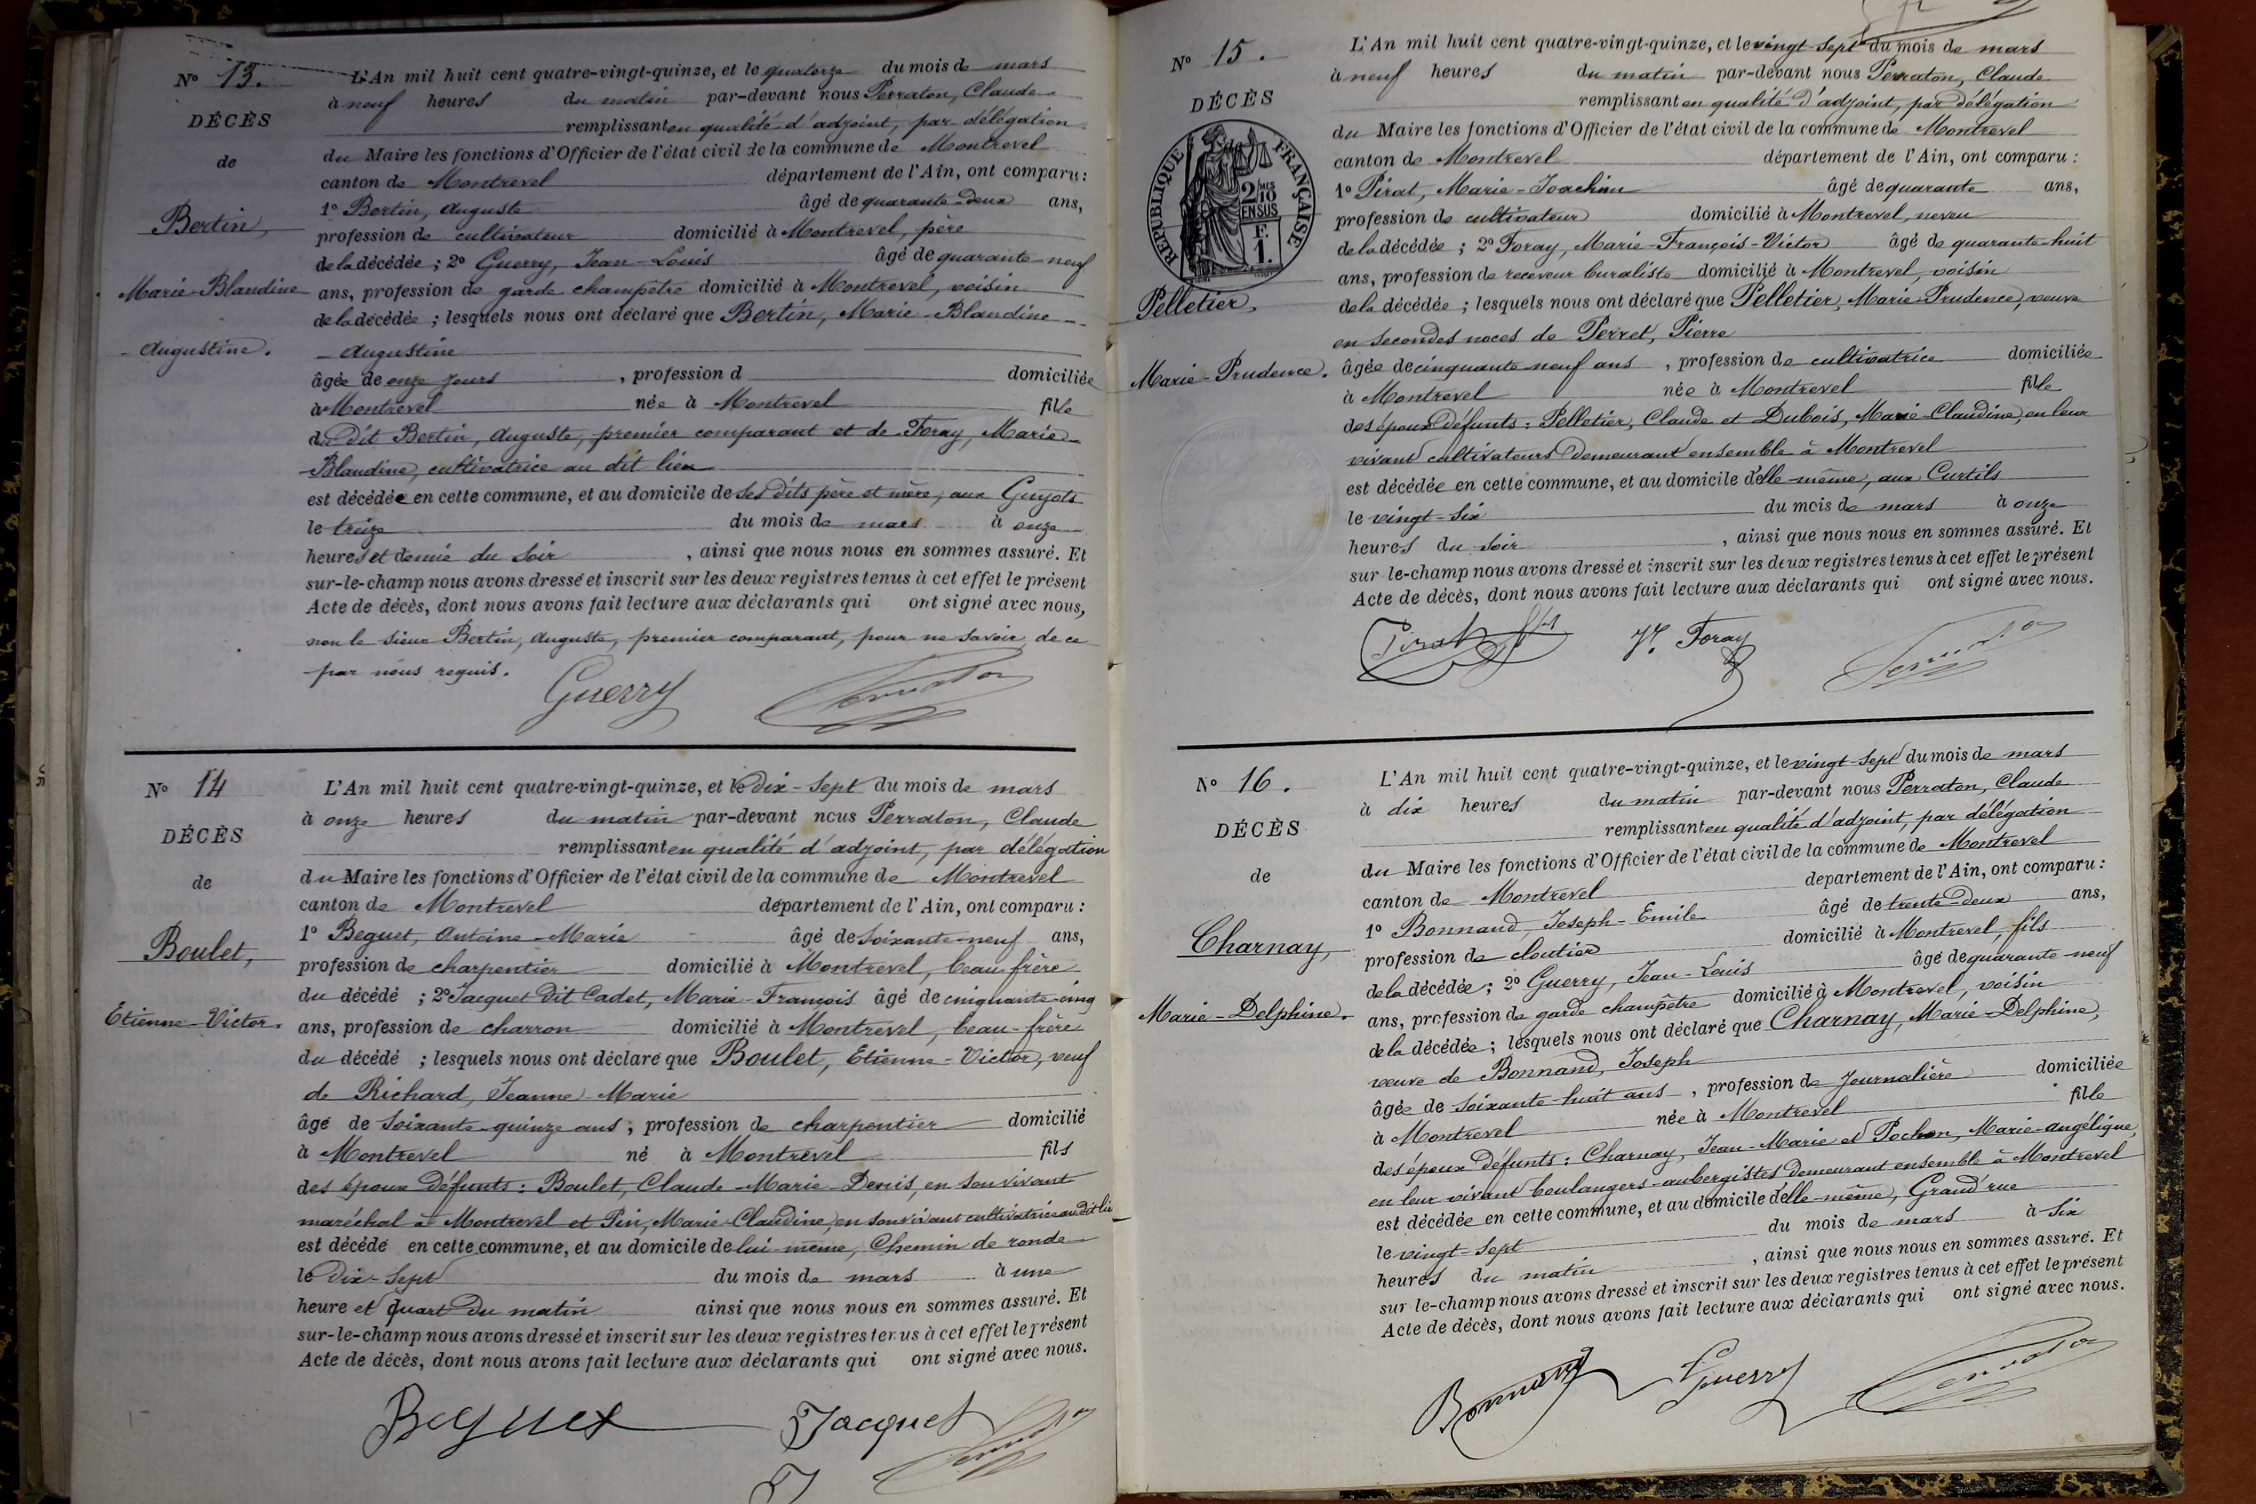 N° 13.
DÉCÈS
de
Bertin,
Marie-Blandine
-Augustine.
L'An mil huit cent quatre-vingt-quinze, et le quatorze du mois de mars
à neuf heures du matin par-devant nous Perraton, Claude
remplissant en qualité d'adjoint, par délégation
du Maire les fonctions d'Officier de l'état civil de la commune de Montrevel
canton de Montrevel département de l'Ain, ont comparu :
1° Bertin, Auguste âgé de quarante-deux ans,
profession de cultivateur domicilié à Montrevel, père
de la décédée ; 2° Guerry, Jean-Louis âgé de quarante-neuf
ans, profession de garde champêtre domicilié à Montrevel, voisin
de la décédée ; lesquels nous ont déclaré que Bertin, Marie-Blandine
-Augustine
âgée de onze jours , profession d domiciliée
à Montrevel née à Montrevel fille
du dit Bertin, Auguste, premier comparant et de Foray, Marie-
Blandine, cultivatrice au dit lieu
est décédée en cette commune, et au domicile de ses dits père et mère, aux Guyots
le treize du mois de mars à onze
heures et demie du soir , ainsi que nous nous en sommes assuré. Et
sur-le-champ nous avons dressé et inscrit sur les deux registres tenus à cet effet le présent
Acte de décès, dont nous avons fait lecture aux déclarants qui ont signé avec nous,
non le sieur Bertin, Auguste, premier comparant, pour ne savoir, de ce
par nous requis.
Guerry Perraton
N° 14
DÉCÈS
de
Boulet,
Etienne-Victor.
L'An mil huit cent quatre-vingt-quinze, et le dix-sept du mois de mars
à onze heures du matin par-devant nous Perraton, Claude
remplissant en qualité d'adjoint, par délégation
du Maire les fonctions d'Officier de l'état civil de la commune de Montrevel
canton de Montrevel département de l'Ain, ont comparu :
1° Beguet, Antoine-Marie âgé de soixante-neuf ans,
profession de charpentier domicilié à Montrevel, beau-frère
du décédé ; 2° Jacquet dit Cadet, Marie-François âgé de cinquante-cinq
ans, profession de charron domicilié à Montrevel, beau-frère
du décédé ; lesquels nous ont déclaré que Boulet, Etienne-Victor, veuf
de Richard, Jeanne-Marie
âgé de soixante-quinze ans, profession de charpentier domicilié
à Montrevel né à Montrevel fils
des époux défunts : Boulet, Claude-Marie-Denis, en son vivant
maréchal à Montrevel et Pin, Marie-Claudine, en son vivant cultivatrice au dit lieu
est décédé en cette commune, et au domicile de lui-même, Chemin de ronde
le dix-sept du mois de mars à une
heure et quart du matin ainsi que nous nous en sommes assuré. Et
sur-le-champ nous avons dressé et inscrit sur les deux registres tenus à cet effet le présent
Acte de décès, dont nous avons fait lecture aux déclarants qui ont signé avec nous.
Beguet Jacquet Perraton
N° 15.
DÉCÈS
RÉPUBLIQUE FRANÇAISE
2/10 MES
EN SUS
F.
1.
Pelletier,
Marie-Prudence.
L'An mil huit cent quatre-vingt-quinze, et le vingt-sept du mois de mars
à neuf heures du matin par-devant nous Perraton, Claude
remplissant en qualité d'adjoint, par délégation
du Maire les fonctions d'Officier de l'état civil de la commune de Montrevel
canton de Montrevel département de l'Ain, ont comparu :
1° Pirat, Marie-Joachim âgé de quarante ans,
profession de cultivateur domicilié à Montrevel, neveu
de la décédée ; 2° Foray, Marie-François-Victor âgé de quarante-huit
ans, profession de receveur buraliste domicilié à Montrevel, voisin
de la décédée ; lesquels nous ont déclaré que Pelletier, Marie-Prudence, veuve
en secondes noces de Perret, Pierre
âgée de cinquante-neuf ans , profession de cultivatrice domiciliée
à Montrevel née à Montrevel fille
des époux défunts : Pelletier, Claude et Dubois, Marie-Claudine, en leur
vivant cultivateurs demeurant ensemble à Montrevel
est décédée en cette commune, et au domicile d'elle-même, aux Curtils
le vingt-six du mois de mars à onze
heures du soir , ainsi que nous nous en sommes assuré. Et
sur-le-champ nous avons dressé et inscrit sur les deux registres tenus à cet effet le présent
Acte de décès, dont nous avons fait lecture aux déclarants qui ont signé avec nous.
Pirat Vr. Foray Perraton
N° 16.
DÉCÈS
de
Charnay,
Marie-Delphine.
L'An mil huit cent quatre-vingt-quinze, et le vingt-sept du mois de mars
à dix heures du matin par-devant nous Perraton, Claude
remplissant en qualité d'adjoint, par délégation
du Maire les fonctions d'Officier de l'état civil de la commune de Montrevel
canton de Montrevel département de l'Ain, ont comparu :
1° Bonnand, Joseph-Emile âgé de trente-deux ans,
profession de cloutier domicilié à Montrevel, fils
de la décédée ; 2° Guerry, Jean-Louis âgé de quarante-neuf
ans, profession de garde champêtre domicilié à Montrevel, voisin
de la décédée ; lesquels nous ont déclaré que Charnay, Marie-Delphine,
veuve de Bonnand, Joseph
âgée de soixante-huit ans , profession de journalière domiciliée
à Montrevel née à Montrevel fille
des époux défunts : Charnay, Jean-Marie et Pochon, Marie-Angélique,
en leur vivant boulangers-aubergistes demeurant ensemble à Montrevel
est décédée en cette commune, et au domicile d'elle-même, Grand'rue
le vingt-sept du mois de mars à six
heures du matin , ainsi que nous nous en sommes assuré. Et
sur-le-champ nous avons dressé et inscrit sur les deux registres tenus à cet effet le présent
Acte de décès, dont nous avons fait lecture aux déclarants qui ont signé avec nous.
Bonnand Guerry Perraton